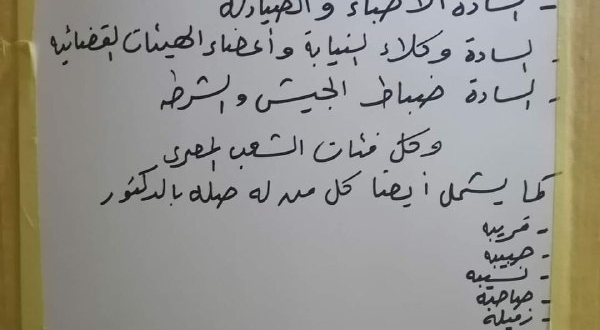 - السادة الأطباء و الصيادلة
- السادة وكلاء النيابة و أعضاء الهيئات القضائيه
- السادة ضباط الجيش و الشرطه
وكل فئات الشعب المصرى
كما يشمل أيضا كل من له صله بالدكتور
- قريبه
- حبيبه
- نسيبه
- صاحبه
- زميله